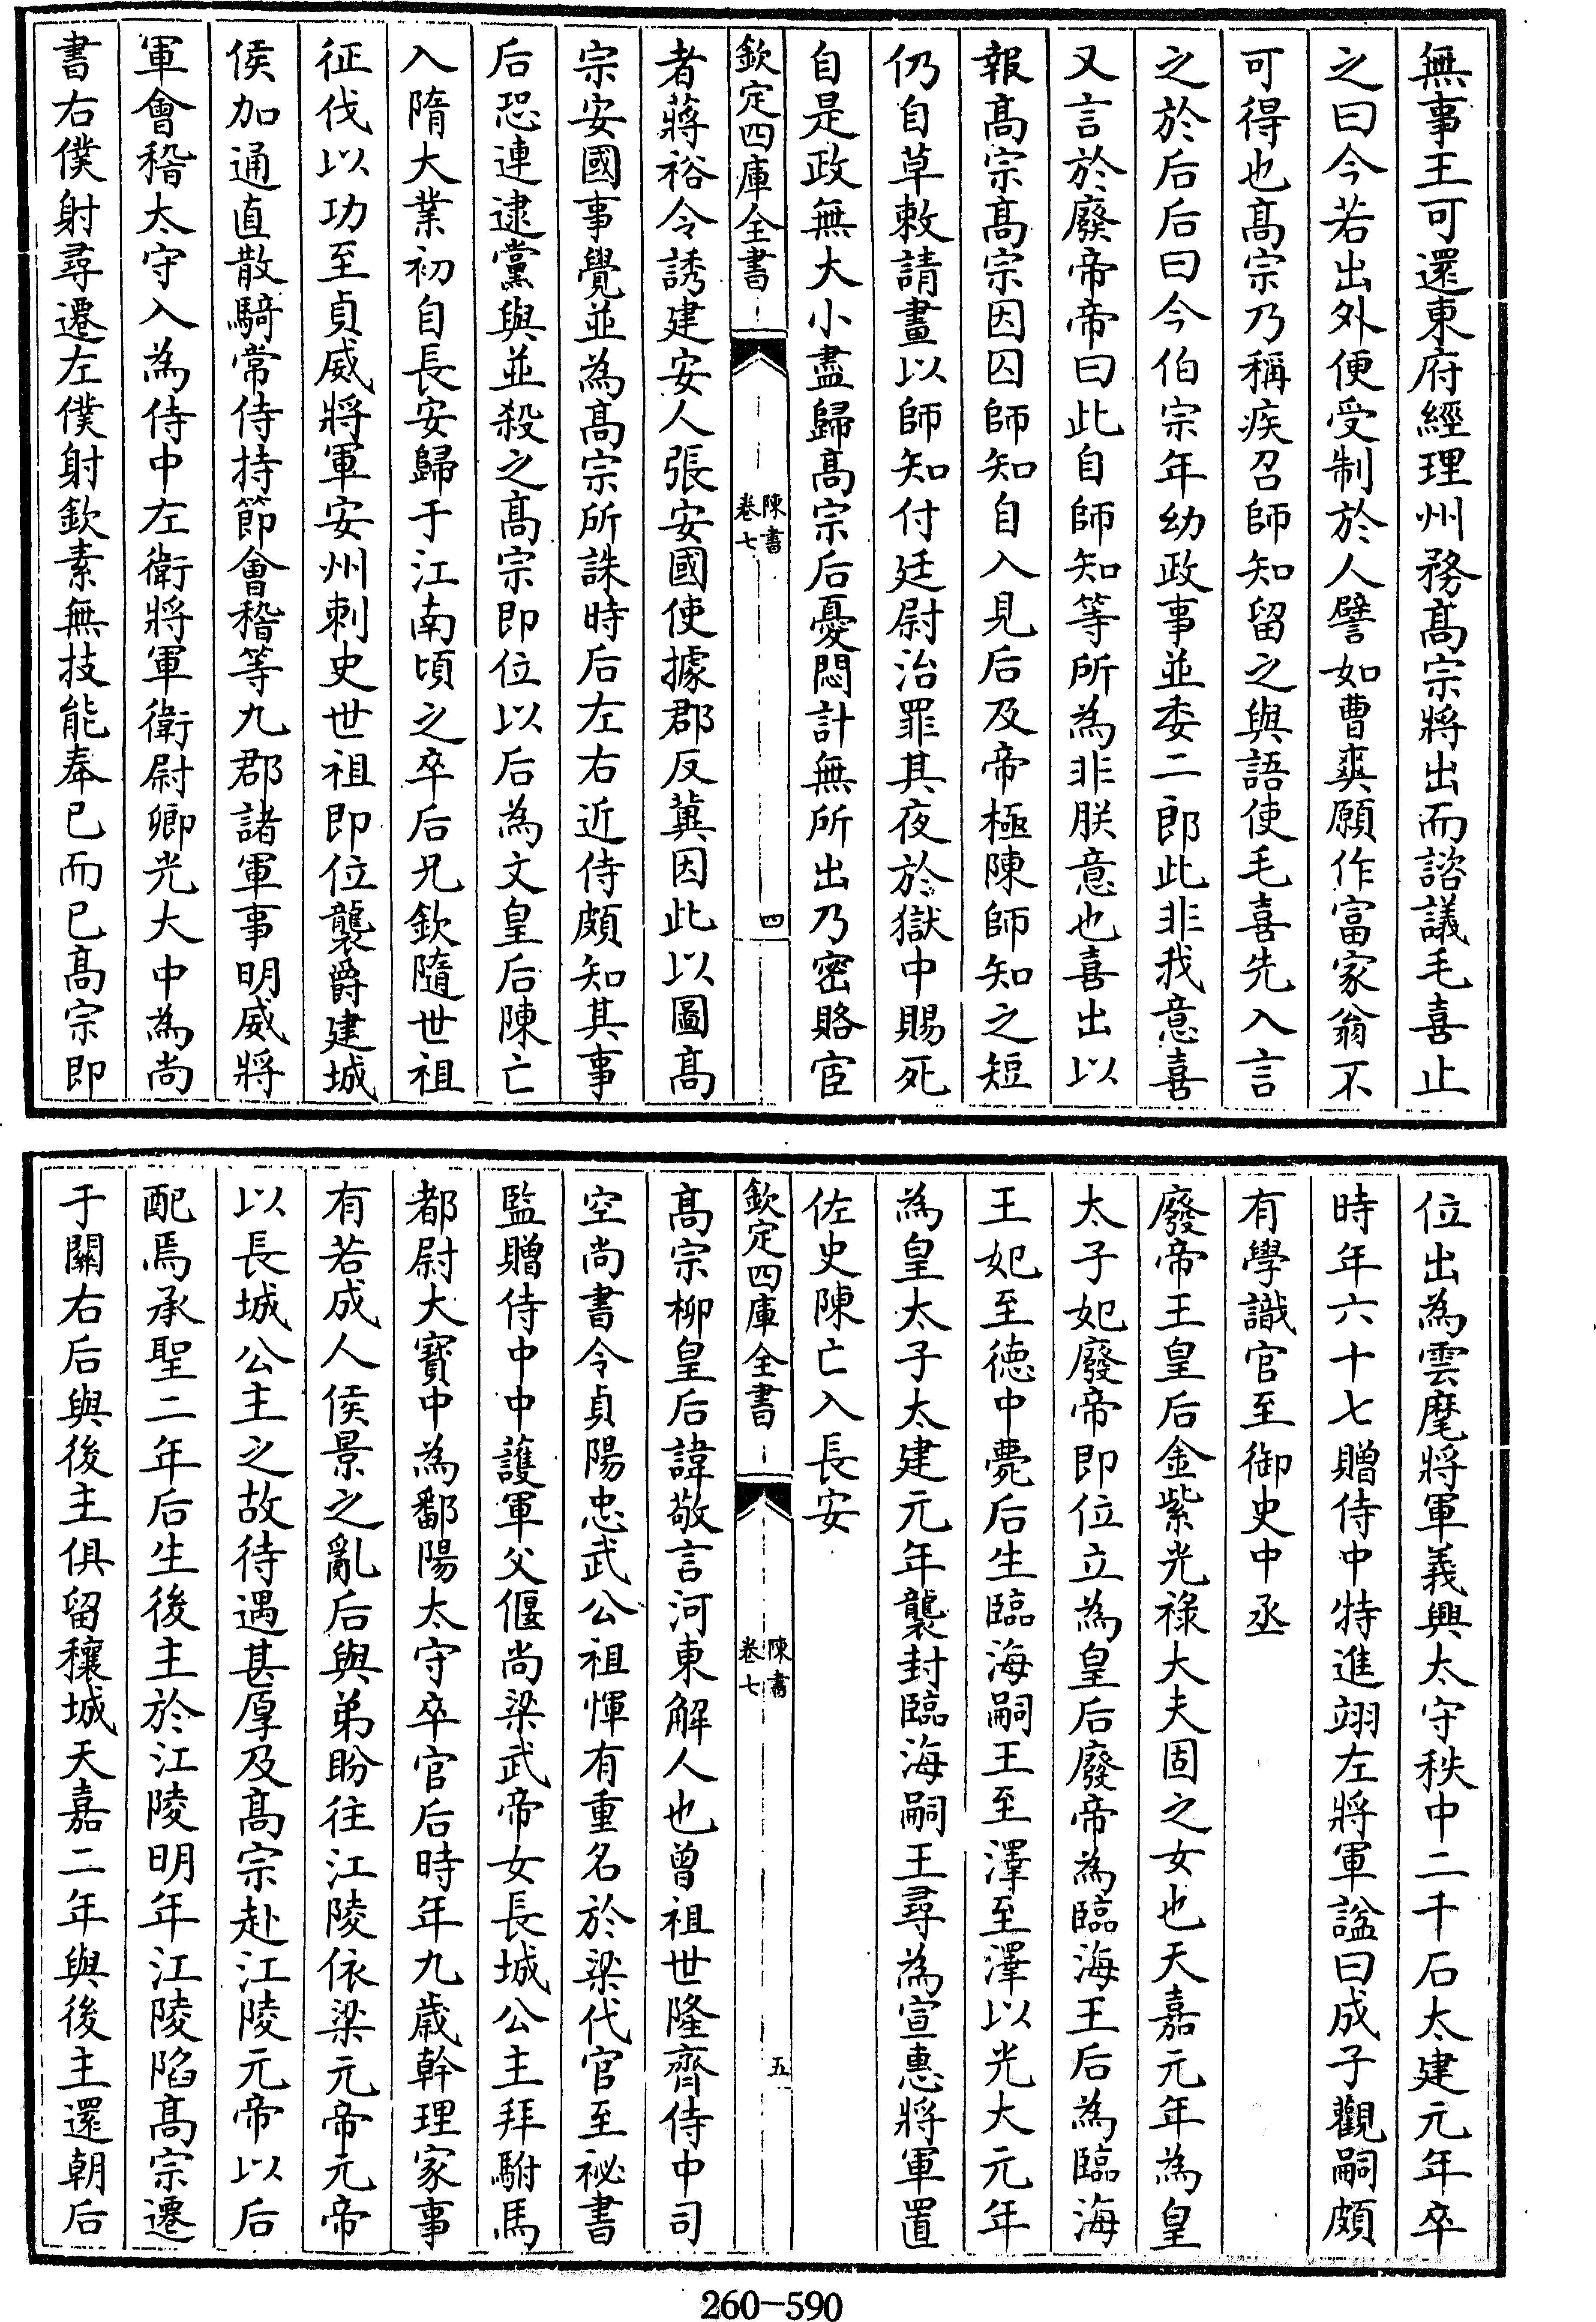 無事王可還東府經理州務髙宗將出而諮議毛喜止
之曰今若出外便受制於人譬如曹爽願作富家翁不
可得也髙宗乃稱疾召師知留之與語使毛喜先入言
之於后后曰今伯宗年幼政事並委二郎此非我意喜
又言於廢帝帝曰此自師知等所為非朕意也喜出以
報髙宗髙宗因囚師知自入見后及帝極陳師知之短
仍自草敕請畫以師知付廷尉治罪其夜於獄中賜死
自是政無大小盡歸髙宗后憂悶計無所出乃密賂宦
欽定四庫全書
陳書
卷七
四
者蔣裕令誘建安人張安國使據郡反冀因此以圖髙
宗安國事覺並為髙宗所誅時后左右近侍頗知其事
后恐連逮黨與並殺之髙宗即位以后為文皇后陳亡
入隋大業初自長安歸于江南頃之卒后兄欽隨世祖
征伐以功至貞威將軍安州刺史世祖即位襲爵建城
侯加通直散騎常侍持節會稽等九郡諸軍事明威將
軍會稽太守入為侍中左衛將軍衛尉卿光大中為尚
書右僕射尋遷左僕射欽素無技能奉已而已髙宗即
位出為雲麾將軍義興太守秩中二千石太建元年卒
時年六十七贈侍中特進翊左將軍諡曰成子觀嗣頗
有學識官至御史中丞
廢帝王皇后金紫光祿大夫固之女也天嘉元年為皇
太子妃廢帝即位立為皇后廢帝為臨海王后為臨海
王妃至徳中薨后生臨海嗣王至澤至澤以光大元年
為皇太子太建元年襲封臨海嗣王尋為宣惠將軍置
佐史陳亡入長安
欽定四庫全書
陳書
卷七
五
髙宗柳皇后諱敬言河東解人也曾祖世隆齊侍中司
空尚書令貞陽忠武公祖惲有重名於梁代官至祕書
監贈侍中中護軍父偃尚梁武帝女長城公主拜駙馬
都尉大寳中為鄱陽太守卒官后時年九歲幹理家事
有若成人侯景之亂后與弟盼往江陵依梁元帝元帝
以長城公主之故待遇甚厚及髙宗赴江陵元帝以后
配焉承聖二年后生後主於江陵明年江陵陷髙宗遷
于關右后與後主俱留穰城天嘉二年與後主還朝后
260-590